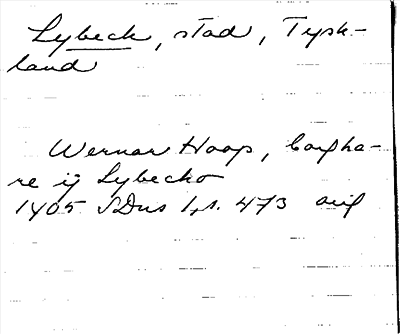 Lybeck, stad, Tysk-
land
Werner Hoop, borgha-
re ij Lybecko
1405 SDns 1, s. 473 orig